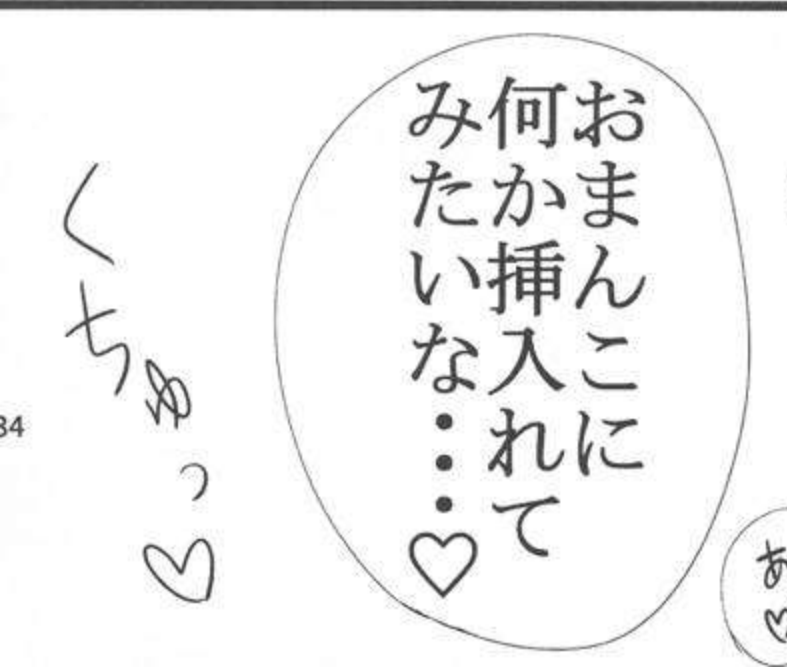 おまんこに
何か挿入れて
みたいな…♡
あ♡
くちゅっ♡
34